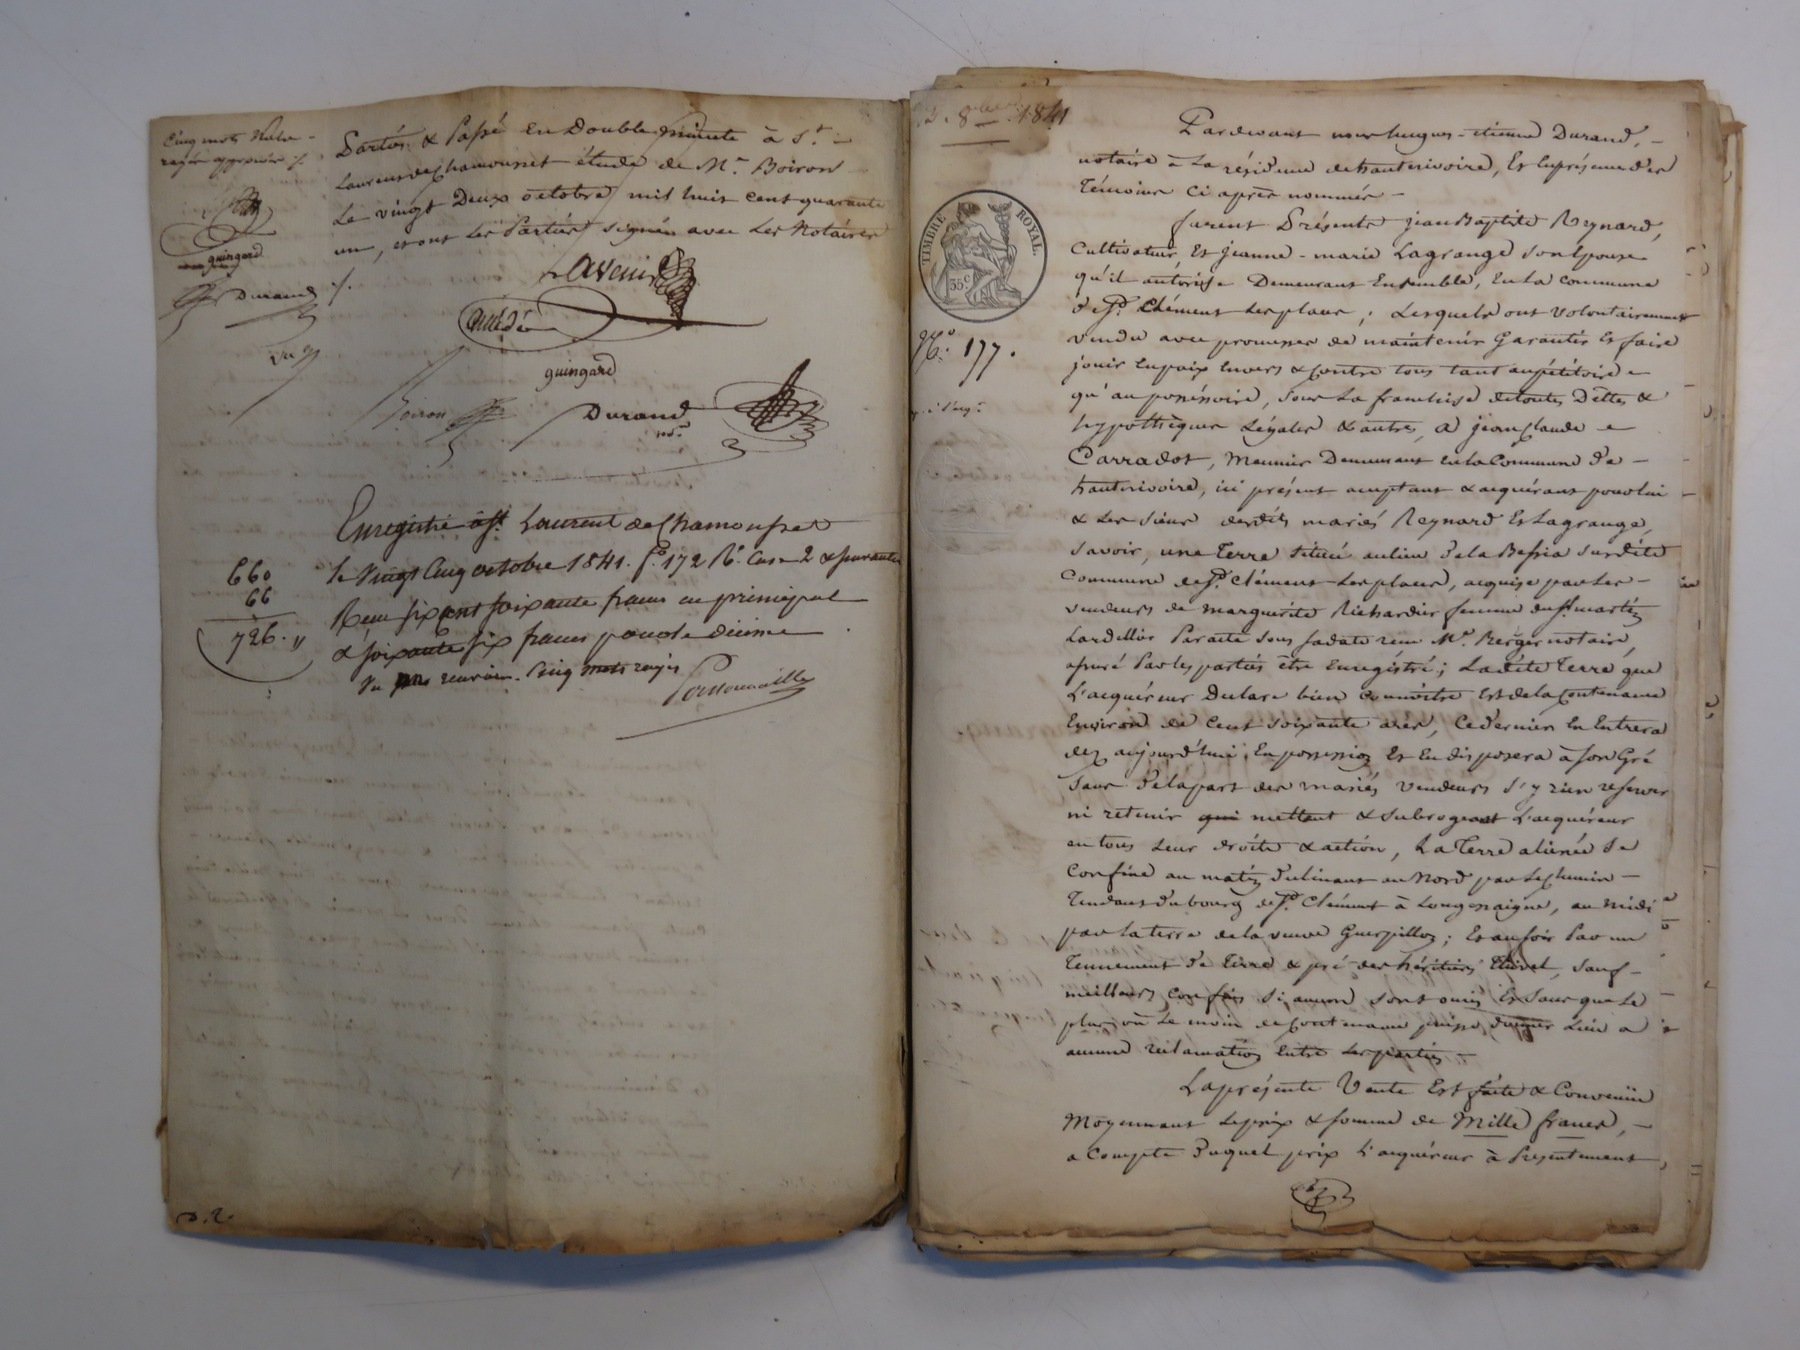 Cinq mots Nuls
rayés approuvés ./.
guingard
Durand
Parties & Passé En Double minute à St.
Laurent de Chamousset étude de Me. Boiron
Le vingt Deux octobre mil huit cent quarante
un, et ont Les Parties signé avec Les Notaires
./.
Avenir
guingard
Boiron
Durand
no.re
Enregistré à St. Laurent de Chamousset
le vingt Cinq octobre 1841. fo. 172 Ro. Case 2 & suivantes
660
66
726. "
Reçu six cent soixante francs en principal
& soixante six francs pour le décime
Cinq mots rayés
D. 2.
8bre 1841
TIMBRE ROYAL.
35c
No. 177.
Pardevant nous hugues-étienne Durand,
notaire à La résidence de hauterivoire, Et En présence des
Témoins Ci après nommés
furent Présents jean Baptiste Reynard,
Cultivateur, Et jeanne-marie Lagrange son Epouse
qu'il autorise Demeurant Ensemble, En La Commune
de St. Clément Les places ; Lesquels ont volontairement
vendu avec promesses de maintenir Garantir Et faire
jouir En paix Envers & Contre tous tant au pétitoire
qu'au possessoire, sous La franchise de toutes Dettes &
hypothèques Légales & autres, A jean Claude
Carradot, Meunier Demeurant En La Commune de
hauterivoire, ici présent acceptant & acquérant pour lui
& Les siens desdits mariés Reynard Et Lagrange,
Savoir, une Terre située au lieu de La Bessia sur dite
Commune de St. Clément-Les places, acquise par Les
vendeurs de marguerite Richardier femme de St. martin
Lardellier Par acte sous sa date reçu Me. Berger notaire,
assuré Par les parties être Enregistré ; La dite Terre que
L'acquéreur Déclare bien Connoître Est de la Contenance
Environ de Cent soixante ares, Ce dernier En Entrera
dez aujourd'hui En possession Et En disposera à son Gré
Sans de la part des mariés vendeurs s'y rien reserver
ni retenir qui mettent & subrogent L'acquéreur
en tous Leur droits & action, La Terre aliénée Se
Confine au matin & au Nord par Le Chemin
Tendant du bourg de St. Clément à Longessaigne, au midi
par La terre de la veuve Guerpillon ; Et au soir Par un
Tennement de Terre & pré des héritiers Thivel, sauf
meilleurs Confins Si aucun sont omis Et sans que Le
plus où Le moin de Contenance puisse donner Lieu a
aucune réclamation Entre Les parties
La présente Vente Est faite & Convenüe
Moyennant Le prix & somme de Mille francs,
a Compte Duquel prix L'acquéreur à Présentement